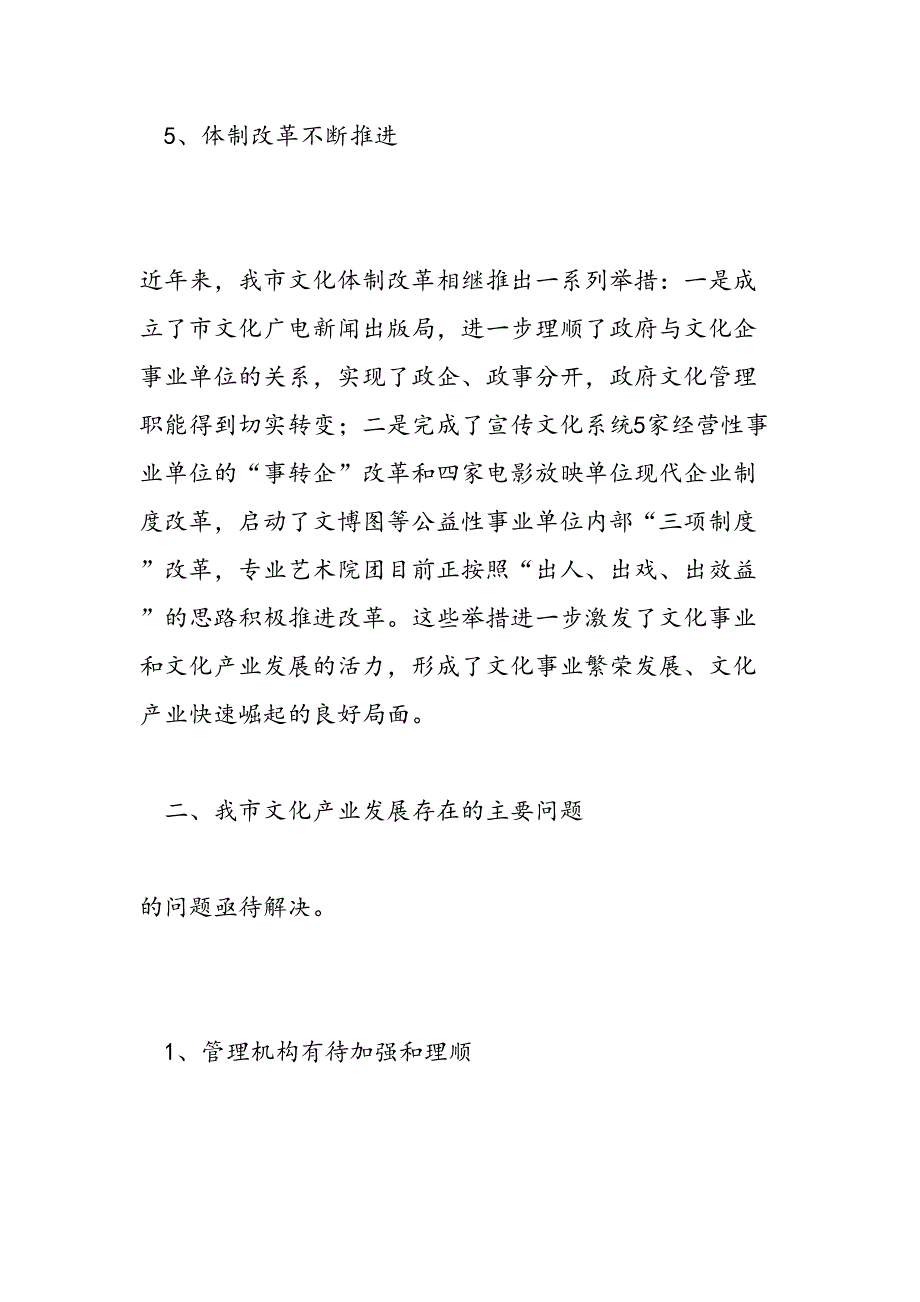 5、体制改革不断推进
近年来，我市文化体制改革相继推出一系列举措：一是成
立了市文化广电新闻出版局，进一步理顺了政府与文化企
事业单位的关系，实现了政企、政事分开，政府文化管理
职能得到切实转变；二是完成了宣传文化系统5家经营性事
业单位的“事转企”改革和四家电影放映单位现代企业制
度改革，启动了文博图等公益性事业单位内部“三项制度
”改革，专业艺术院团目前正按照“出人、出戏、出效益
”的思路积极推进改革。这些举措进一步激发了文化事业
和文化产业发展的活力，形成了文化事业繁荣发展、文化
产业快速崛起的良好局面。
二、我市文化产业发展存在的主要问题
的问题亟待解决。
1、管理机构有待加强和理顺